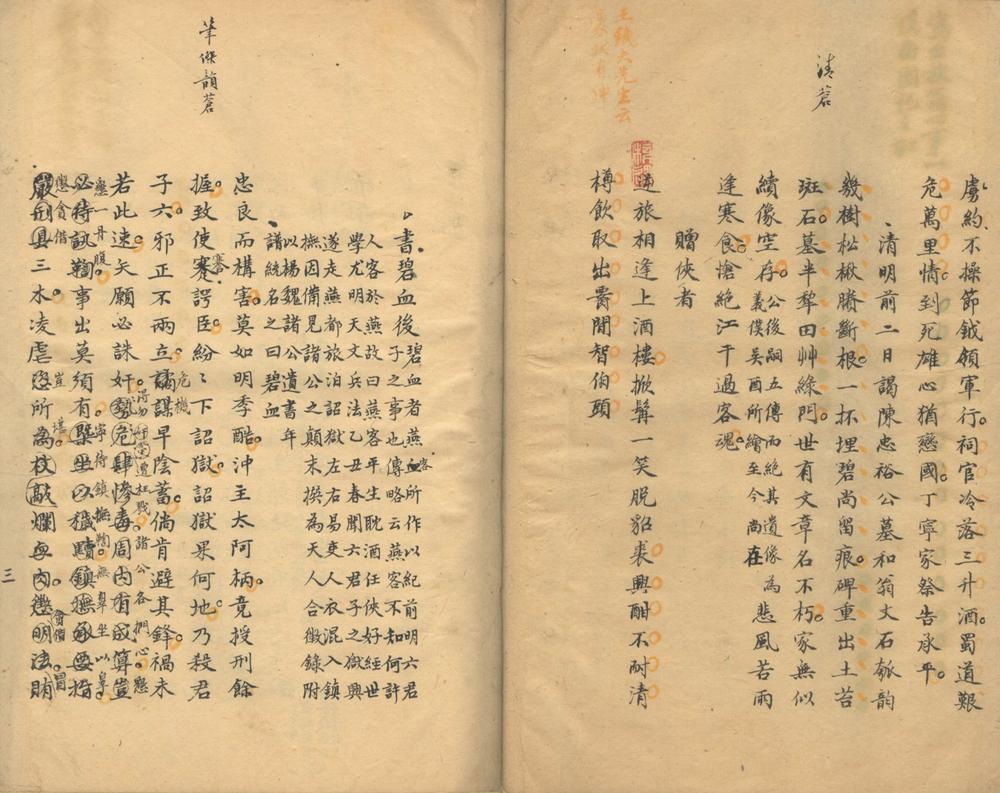 清蒼
虜約不操節鉞領軍行祠官冷落三升酒蜀道艱
危萬里情到死雄心猶戀國丁寧家祭告承平
清明前二日謁陳忠裕公墓和翁丈石瓠韵
幾樹松楸勝斷根一抔埋碧尚留痕碑重出土苔
斑石墓半犂田艸綠門世有文章名不朽家無似
續像空存公後嗣五傳而絕其遺像為義僕吳酉所繪至今尚在悲風苦雨
逢寒食愴絕江干過客魂
贈俠者
逆旅相逢上酒樓掀髯一笑脫貂裘興酣不耐清
樽飲取出囊開智伯頭
王先生云
筆傑韻蒼
書碧血後碧血者燕客所作以紀前明六君
子之事也傳略云燕客不知何許
人客於燕故曰燕客平生耽酒任俠好經世
學尤明天文兵法乙丑春聞六君子之獄興
遂走燕都旅泊詔獄左右易吏人衣混入鎮
撫因備見諸公之顛末撰為天人合徵錄附
以楊魏諸公遺書年
譜統名之曰碧血
忠良而構害莫如明季酷沖主太阿柄竟授刑餘
握致使寋諤臣紛〻下詔獄詔獄果何地乃殺君
子六邪正不兩立謀早陰蓄倘肯避其鋒禍未
若此速矣願必誅奸危肆慘毒周內有成算豈
必待訊鞫事出莫須有
三木凌虐恣所為敲爛血肉明法賄
三